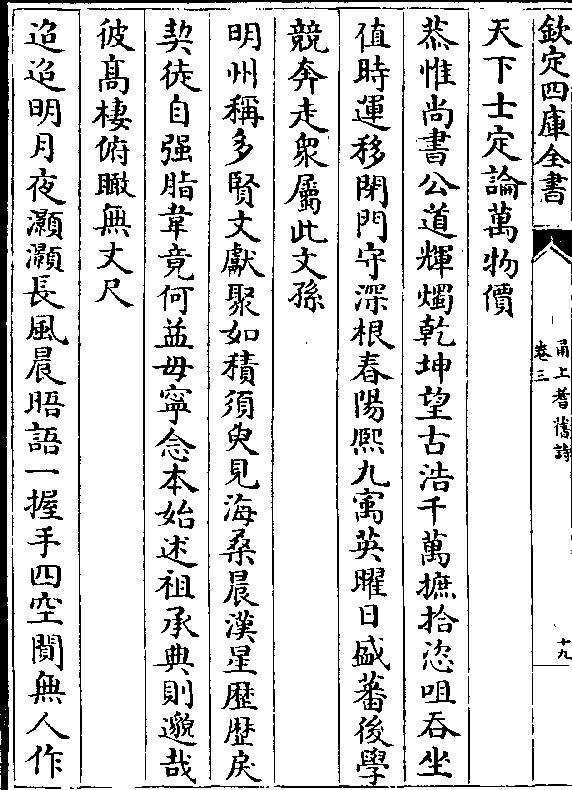 欽定四庫全書
甬上耆舊詩
卷三
十九
天下士定論萬物價
恭惟尚書公道輝燭乾坤望古浩千萬摭拾恣咀吞坐
值時運移閉門守深根春陽熙九寓英曜日盛蕃後學
競奔走衆屬此文孫
明州稱多賢文獻聚如積須臾見海桑晨漢星歴歴戾
契徒自强脂韋竟何益毋寧念本始述祖承典則邈哉
彼髙棲俯瞰無丈尺
迢迢明月夜灝灝長風晨晤語一握手四空闃無人作